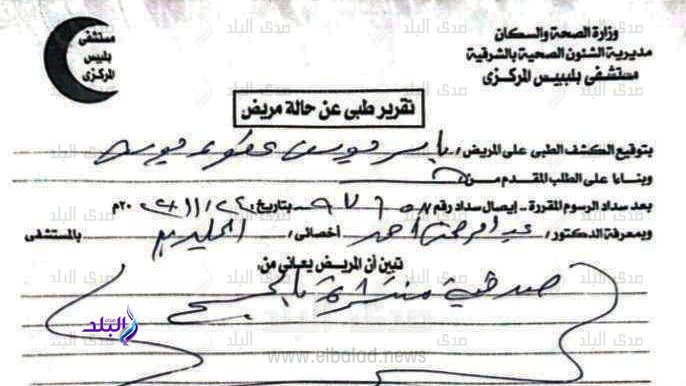 وزارة الصحة والسكان
مديرية الشئون الصحية بالشرقية
مستشفى بلبيس المركزى
مستشفى
بلبيس
المركزى
تقرير طبى عن حالة مريض
بتوقيع الكشف الطبى على المريض / ياسر
وبناءا على الطلب المقدم من
بعد سداد الرسوم المقررة - إيصال سداد رقم بتاريخ ٢٠ م
وبمعرفة الدكتور / احمد أخصائى / الجلدية بالمستشفى
تبين أن المريض يعانى من:
صدفية منتشرة بالجسم
صدى البلد
www.elbalad.news